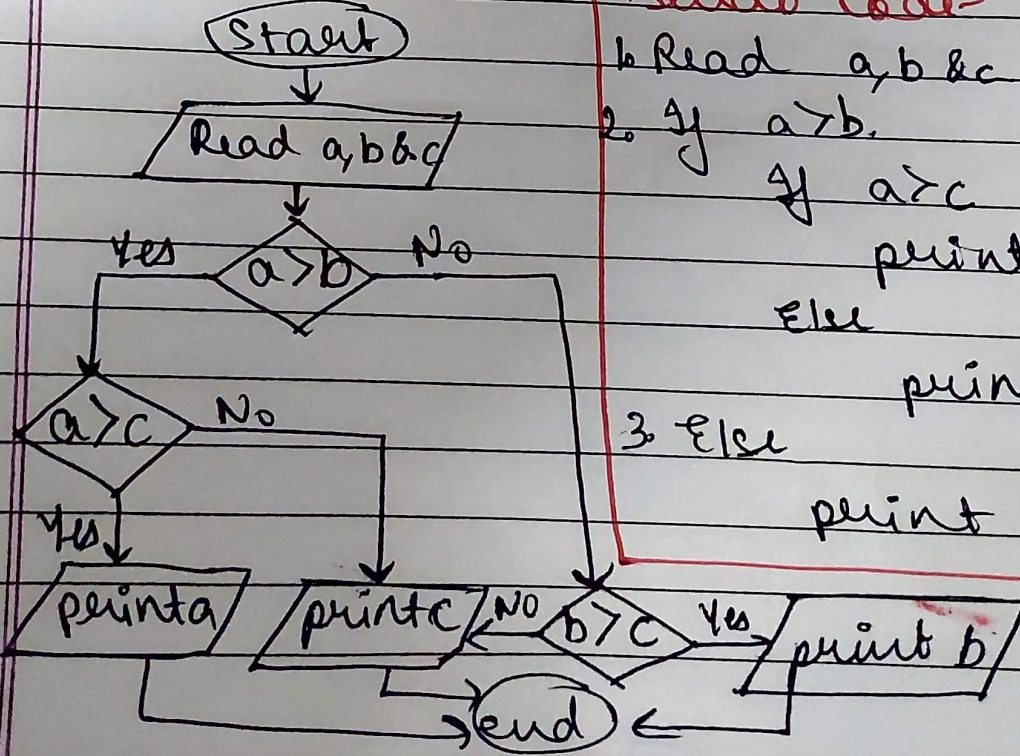 Start
Read a,b&c
a>b
Yes
No
a>c
No
Yes
print a
print c
No
b>c
Yes
print b
end
Code
1. Read a,b &c
2. If a>b.
If a>c
print
Else
prin
3. Else
print